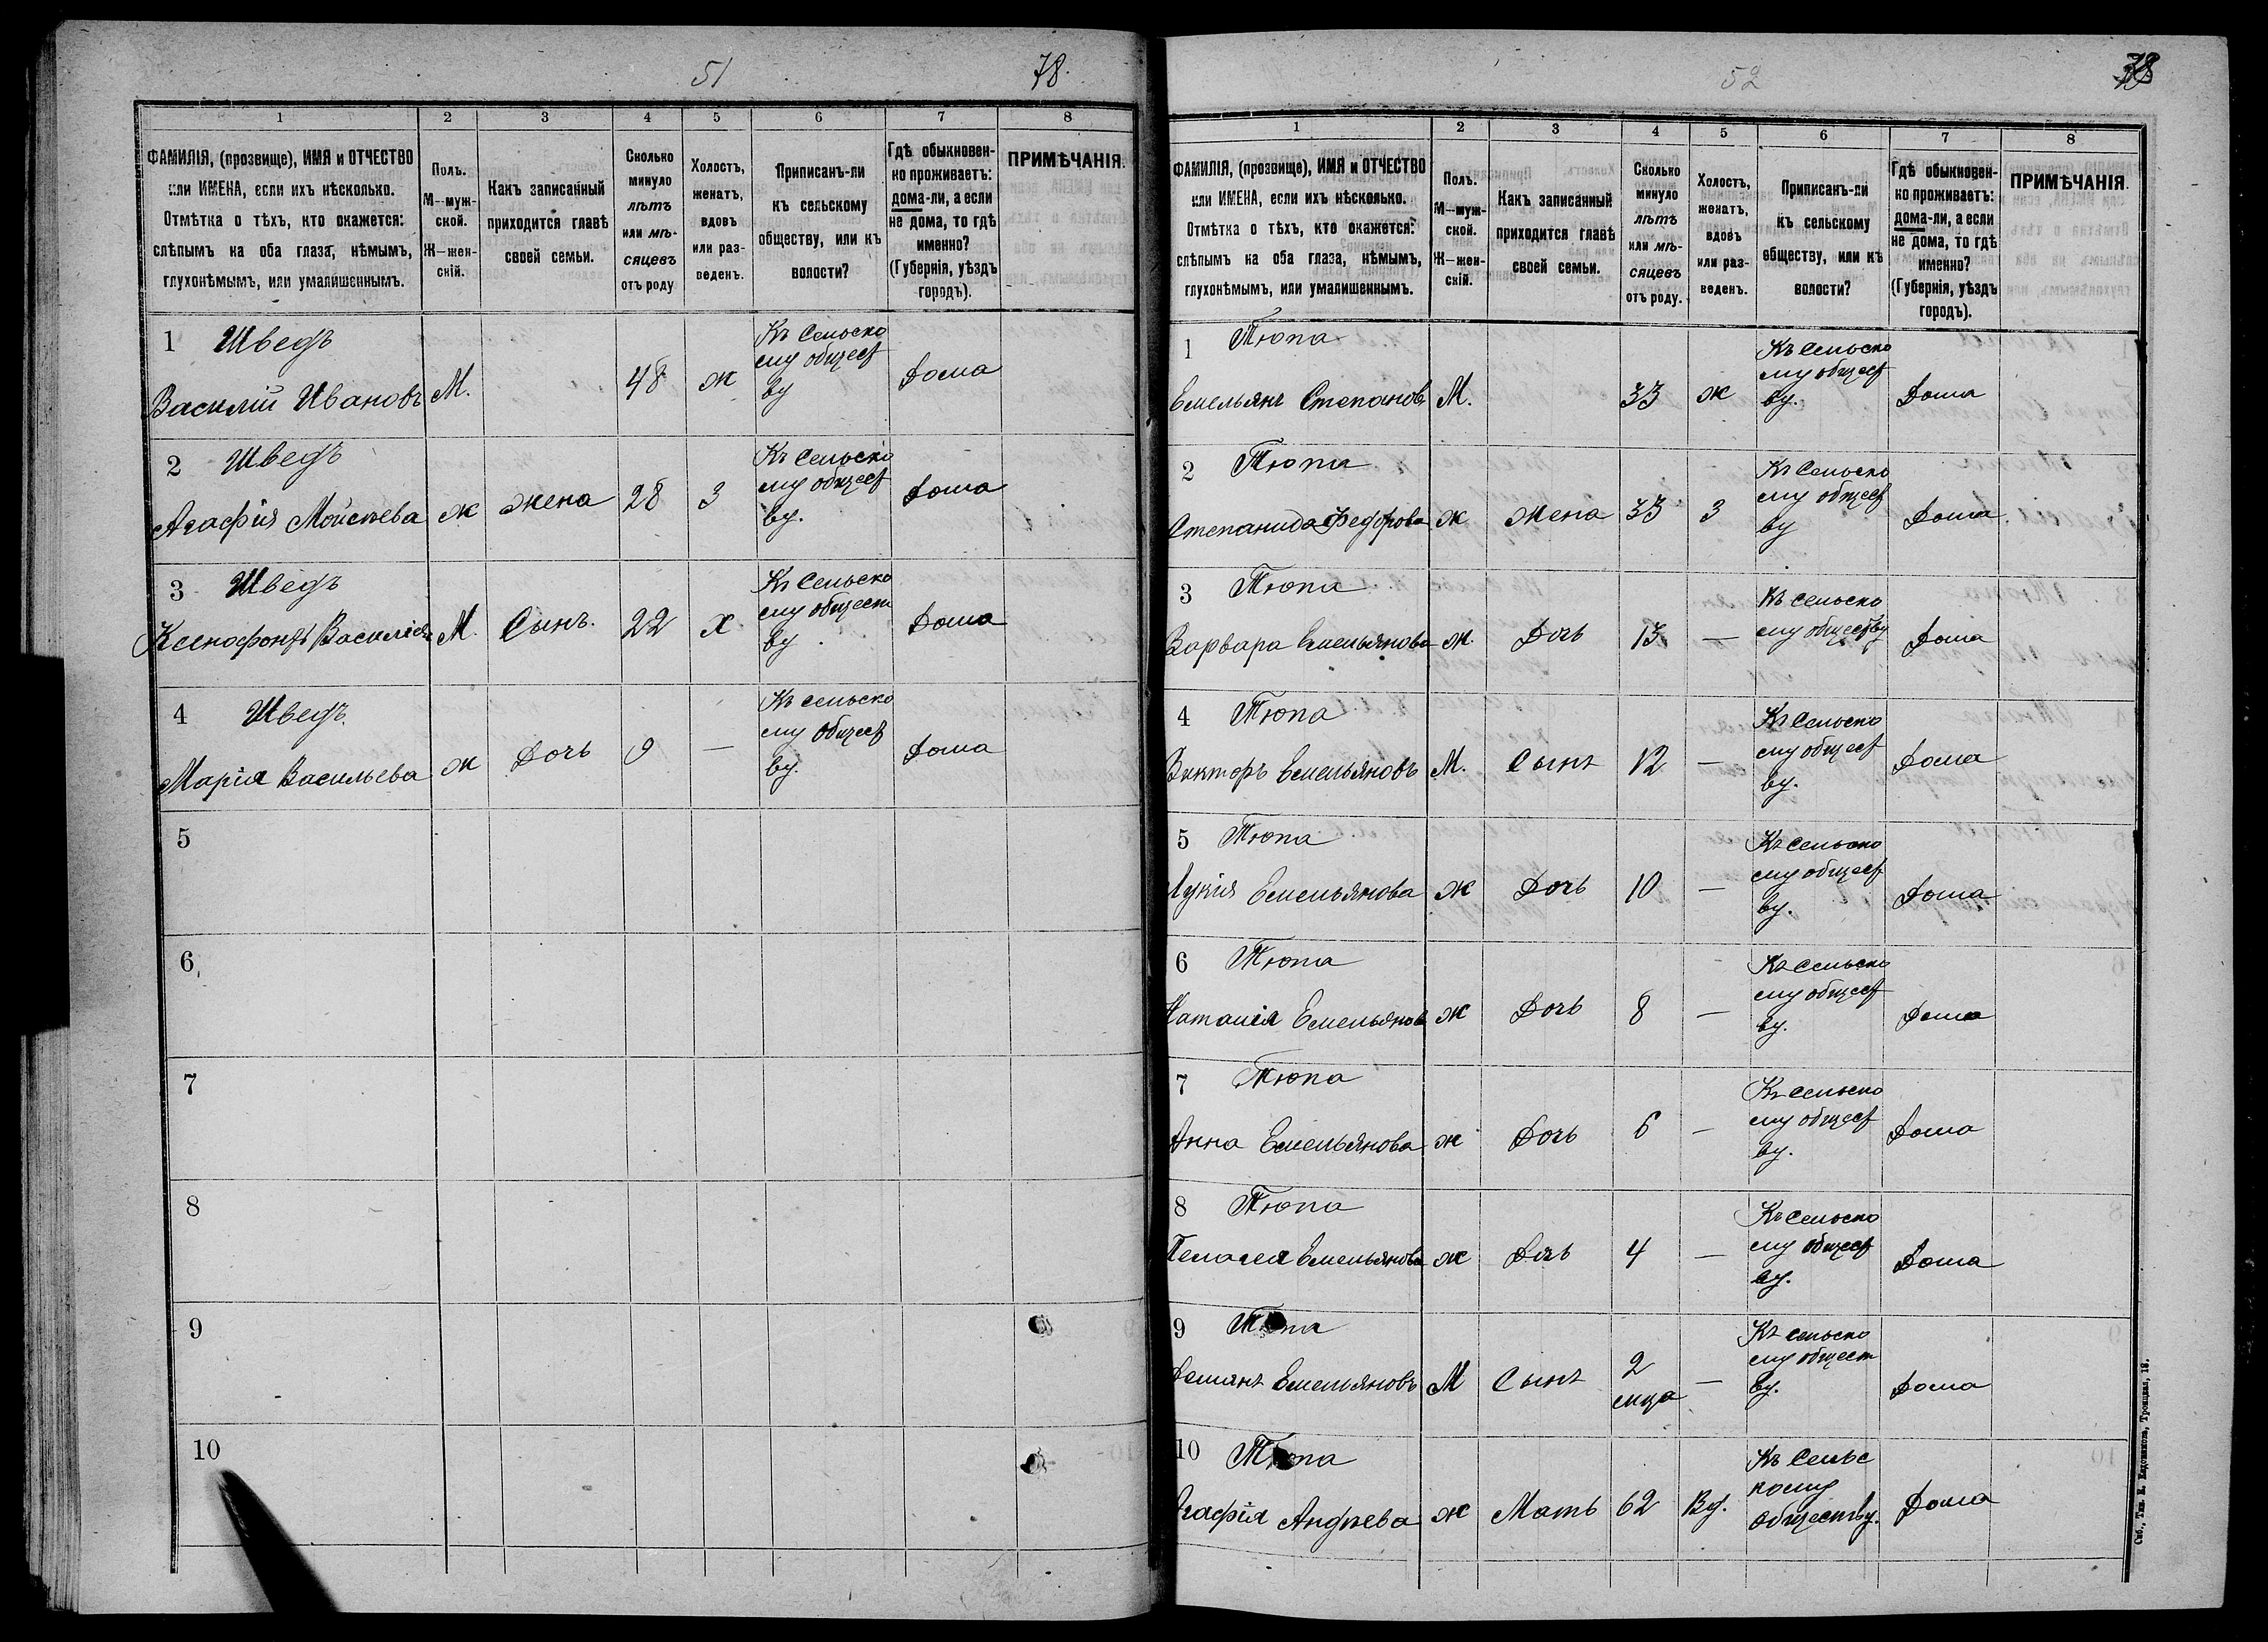 51
78.
1 2 3 4 5 6 7 8
ФАМИЛІЯ, (прозвище), ИМЯ и ОТЧЕСТВО
или ИМЕНА, если ихъ нѣсколько.
Отмѣтка о тѣхъ, кто окажется:
слѣпымъ на оба глаза, нѣмымъ,
глухонѣмымъ, или умалишеннымъ.
Полъ.
М—муж-
ской.
Ж—жен-
скій.
Какъ записанный
приходится главѣ
своей семьи.
Сколько
минуло
лѣтъ
или мѣ-
сяцевъ
отъ роду
Холостъ,
женатъ,
вдовъ
или раз-
веденъ.
Приписанъ-ли
къ сельскому
обществу, или къ
волости?
Гдѣ обыкновен-
но проживаетъ:
дома-ли, а если
не дома, то гдѣ
именно?
(Губернія, уѣздъ
городъ).
ПРИМѢЧАНІЯ.
1 Шведъ
Василій Ивановъ М. 48 ж
Къ Сельско
му общест
ву
Дома
2 Шведъ
Агафія Мойсѣева ж жена 28 З
Къ Сельско
му общест
ву.
Дома
3 Шведъ
Ксенофонтъ М. Сынъ. 22 Х
Къ Сельско
му общест
ву
Дома
4 Шведъ
Марія Васильева ж Дочь 9 —
Къ сельско
му общест
ву.
Дома
5
6
7
8
9
10
52
78
1 2 3 4 5 6 7 8
ФАМИЛІЯ, (прозвище), ИМЯ и ОТЧЕСТВО
или ИМЕНА, если ихъ нѣсколько.
Отмѣтка о тѣхъ, кто окажется:
слѣпымъ на оба глаза, нѣмымъ,
глухонѣмымъ, или умалишеннымъ.
Полъ.
М—муж-
ской.
Ж—жен-
скій.
Какъ записанный
приходится главѣ
своей семьи.
Сколько
минуло
лѣтъ
или мѣ-
сяцевъ
отъ роду.
Холостъ,
женатъ,
вдовъ
или раз-
веденъ.
Приписанъ-ли
къ сельскому
обществу, или къ
волости?
Гдѣ обыкновен-
но проживаетъ:
дома-ли, а если
не дома, то гдѣ
именно?
(Губернія, уѣздъ
городъ).
ПРИМѢЧАНІЯ.
1 Тюпа
Емельянъ Степановъ М. 33 ж
Къ Сельско
му общест
ву.
Дома
2 Тюпа
Степанида Федорова ж Жена 33 З
Къ Сельско
му общест
ву
Дома
3 Тюпа
Варвара Емельянова ж. Дочь 13 —
Къ сельско
му обществу
Дома
4 Тюпа
Викторъ Емельяновъ М. Сынъ 12 —
Къ Сельско
му общест
ву.
Дома
5 Тюпа
Лукія Емельянова ж Дочь 10 —
Къ Сельско
му общест
ву.
Дома
6 Тюпа
Наталія Емельянова ж Дочь 8 —
Къ Сельско
му общест
ву.
Дома
7 Тюпа
Анна Емельянова ж Дочь 6 —
Къ сельско
му общест
ву.
Дома
8 Тюпа
Пелагея Емельянова ж Дочь 4 —
Къ сельско
му общест
ву.
Дома
9 Тюпа
Демянъ Емельяновъ М Сынъ 2
мца —
Къ сельско
му общест
ву.
Дома
10 Тюпа
Агафія Андѣева ж Мать 62 Вд.
Къ Сельс
кому
обществу.
Дома
Спб., Тип. Е. Евдокимова, Троицкая, 18.